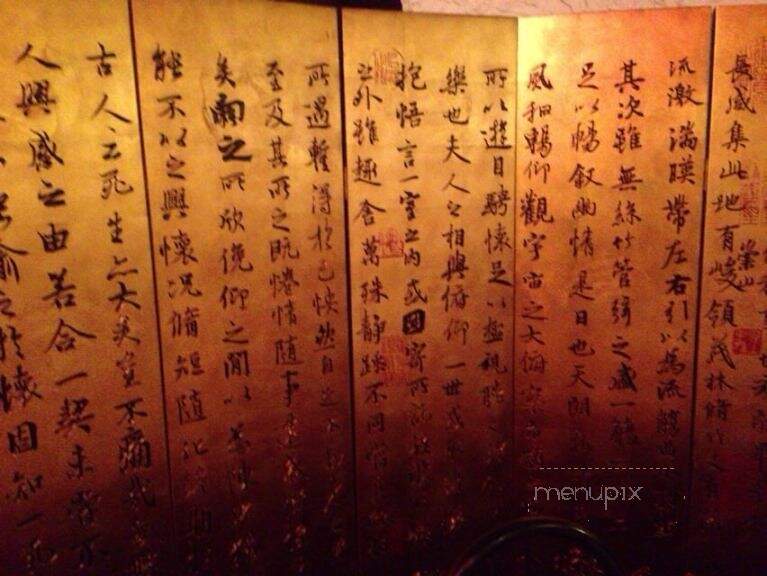 長咸集此地有崇山峻領茂林脩竹又有
流激湍暎帶左右引以為流觴曲
其次雖無絲竹管弦之盛一觴
足以暢敘幽情是日也天朗
風和暢仰觀宇宙之大俯察品
所以遊目騁懷足以極視聽之
樂也夫人之相與俯仰一世或取
抱悟言一室之內或因寄所託
之外雖趣舍萬殊靜躁不同當
所遇暫得於己怏然自足不
至及其所之既惓情隨事遷
矣向之所欣俛仰之閒以為陳
能不以之興懷況脩短隨化終
古人云死生亦大矣豈不痛哉
人興感之由若合一契未嘗不
喻之於懷固知一死
menupix